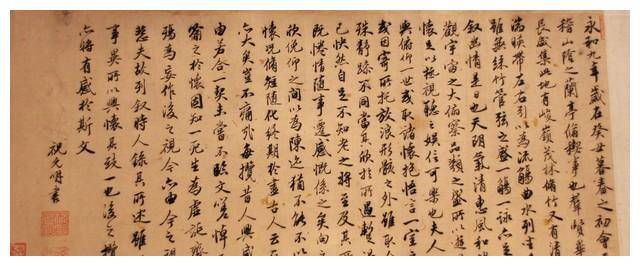 永和九年歲在癸丑暮春之初會
稽山陰之蘭亭脩禊事也羣賢畢
長咸集此地有峻嶺茂林脩竹又有清
湍暎帶左右引以為流觴曲水列坐
雖無絲竹管弦之盛一觴一詠亦足
叙幽情是日也天朗氣清惠風和
觀宇宙之大俯察品類之盛所以遊
懷足以極視聽之娛信可樂也夫人
與俯仰一世或取諸懷抱悟言一室之
或因寄所托放浪形骸之外雖取
殊靜躁不同當其欣於所遇暫
己快然自足不知老之將至及其所
既惓情隨事遷感慨係之矣向之
欣俛仰之間以為陳迹猶不能不以
懷況脩短隨化終期於盡古人云
亦大矣豈不痛哉每攬昔人興感
由若合一契未嘗不臨文嗟悼
喻之於懷固知一死生為虛誕
殤為妄作後之視今亦由今之視
悲夫故列叙時人錄其所述雖
事異所以興懷其致一也後之攬
亦將有感於斯文
祝允明書